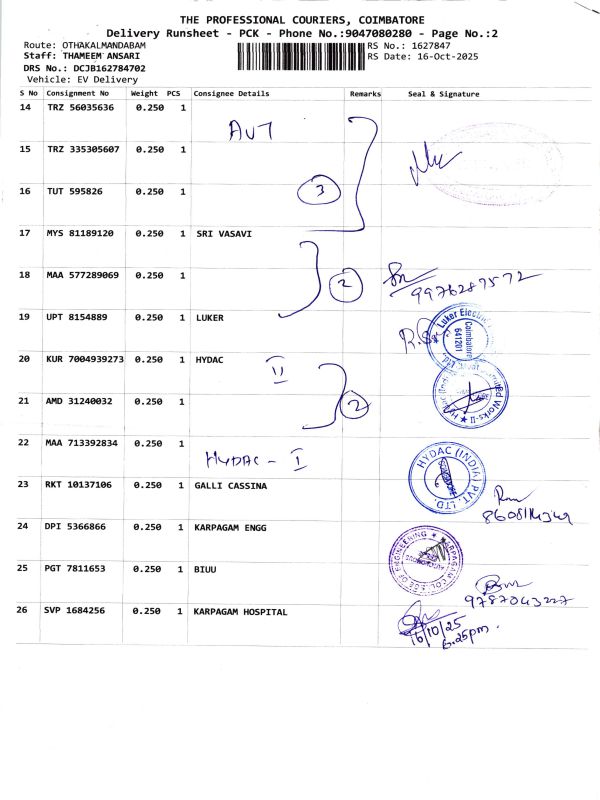 THE PROFESSIONAL COURIERS, COIMBATORE
Delivery Runsheet - PCK - Phone No.:9047080280 - Page No.:2
Route: OTHAKALMANDABAM
RS No.: 1627847
Staff: THAMEEM ANSARI
RS Date: 16-Oct-2025
DRS No.: DCJB162784702
Vehicle: EV Delivery
S No Consignment No Weight PCS Consignee Details Remarks Seal & Signature
14 TRZ 56035636 0.250 1
AVT
15 TRZ 335305607 0.250 1
16 TUT 595826 0.250 1
3
17 MYS 81189120 0.250 1 SRI VASAVI
18 MAA 577289069 0.250 1
2
9976287572
19 UPT 8154889 0.250 1 LUKER
Luker Electric
Coimbatore
641201
20 KUR 7004939273 0.250 1 HYDAC
II
21 AMD 31240032 0.250 1
2
22 MAA 713392834 0.250 1
HYDAC - I
HYDAC (INDIA) PVT. LTD.
23 RKT 10137106 0.250 1 GALLI CASSINA
24 DPI 5366866 0.250 1 KARPAGAM ENGG
KARPAGAM COLLEGE OF ENGINEERING
25 PGT 7811653 0.250 1 BIUU
9787043227
26 SVP 1684256 0.250 1 KARPAGAM HOSPITAL
16/10/25
6.25pm.